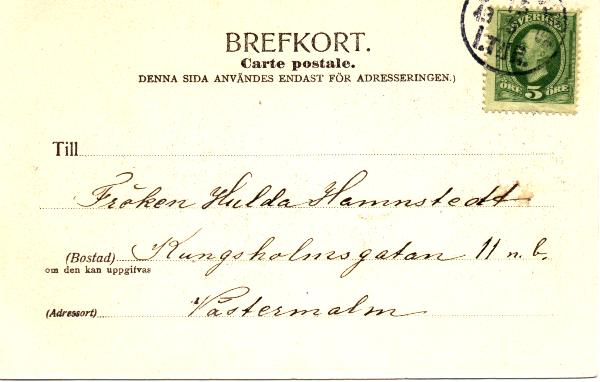 SVERIGE
ÖRE 5 ÖRE
BREFKORT.
Carte postale.
DENNA SIDA ANVÄNDES ENDAST FÖR ADRESSERINGEN.)
Till
Fröken Hulda Hamnstedt
(Bostad) Kungsholmsgatan 11 n. b.
om den kan uppgifvas
(Adressort) Västermalm